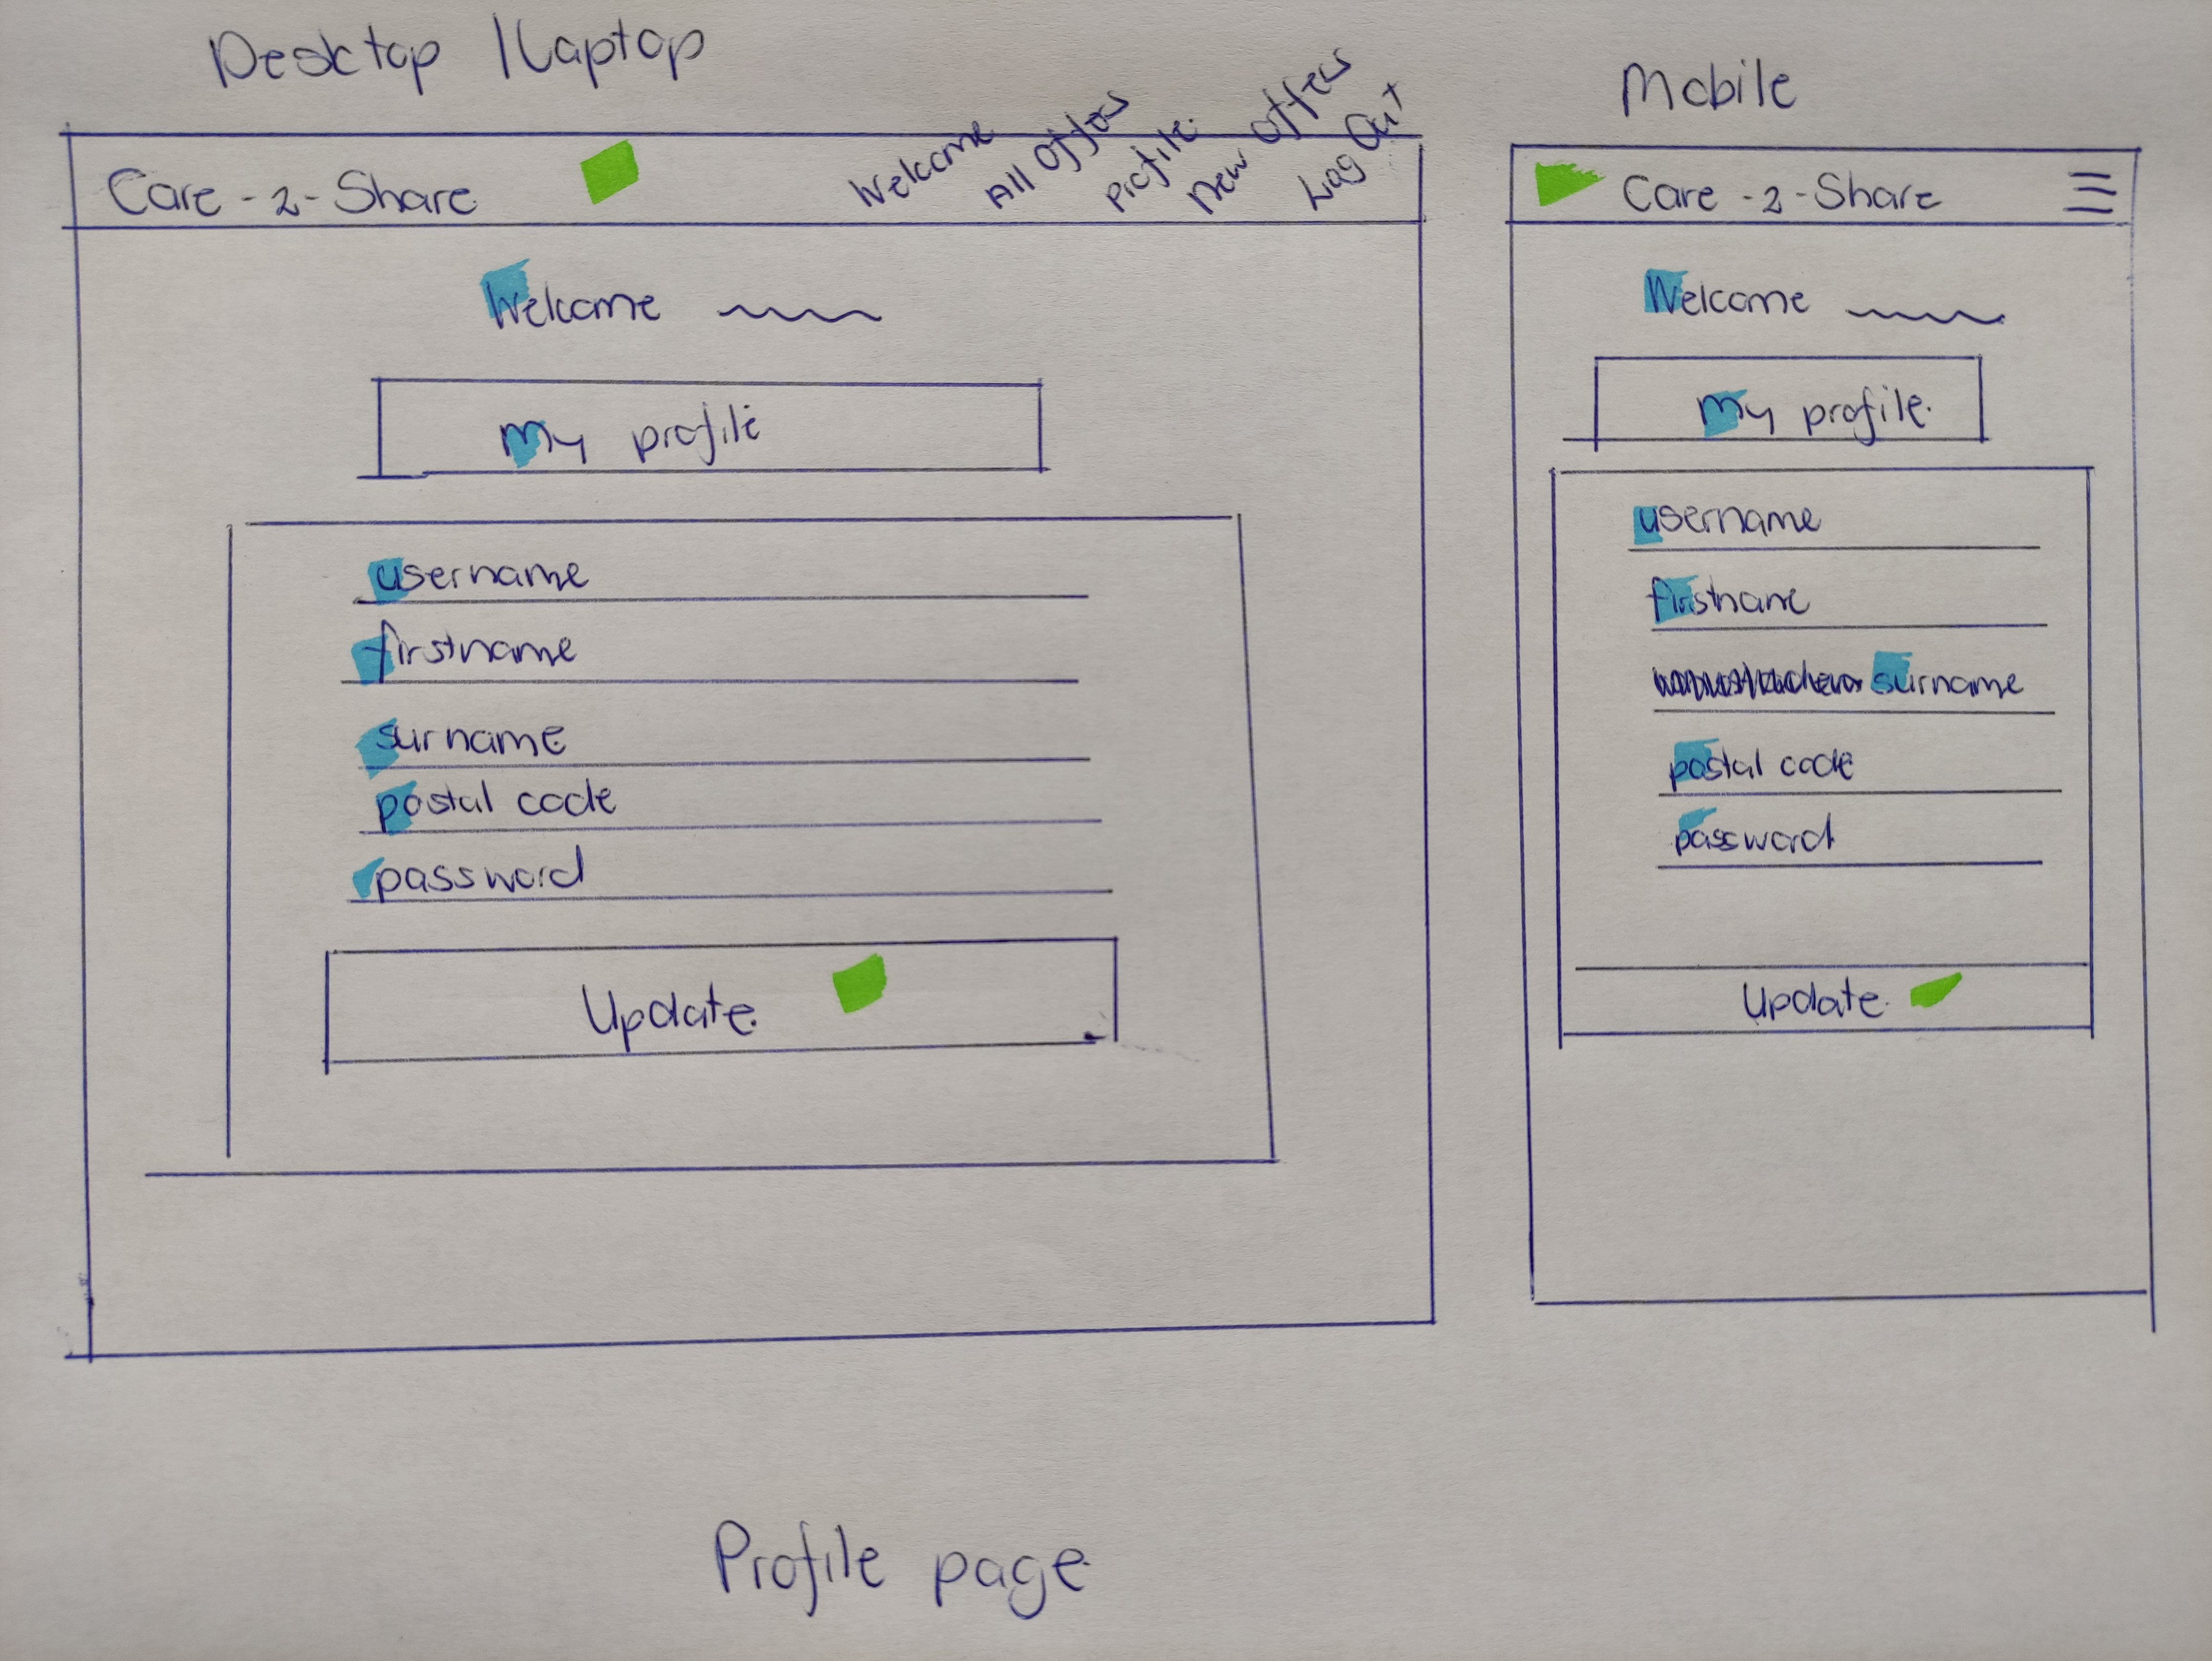 Desktop / Laptop
Care-2-Share
Welcome
All Offers
Profile
New Offers
Log Out
Welcome
My profile
username
firstname
surname
postal code
password
Update
Mobile
Care-2-Share
Welcome
My profile
username
firstname
surname
postal code
password
Update
Profile page